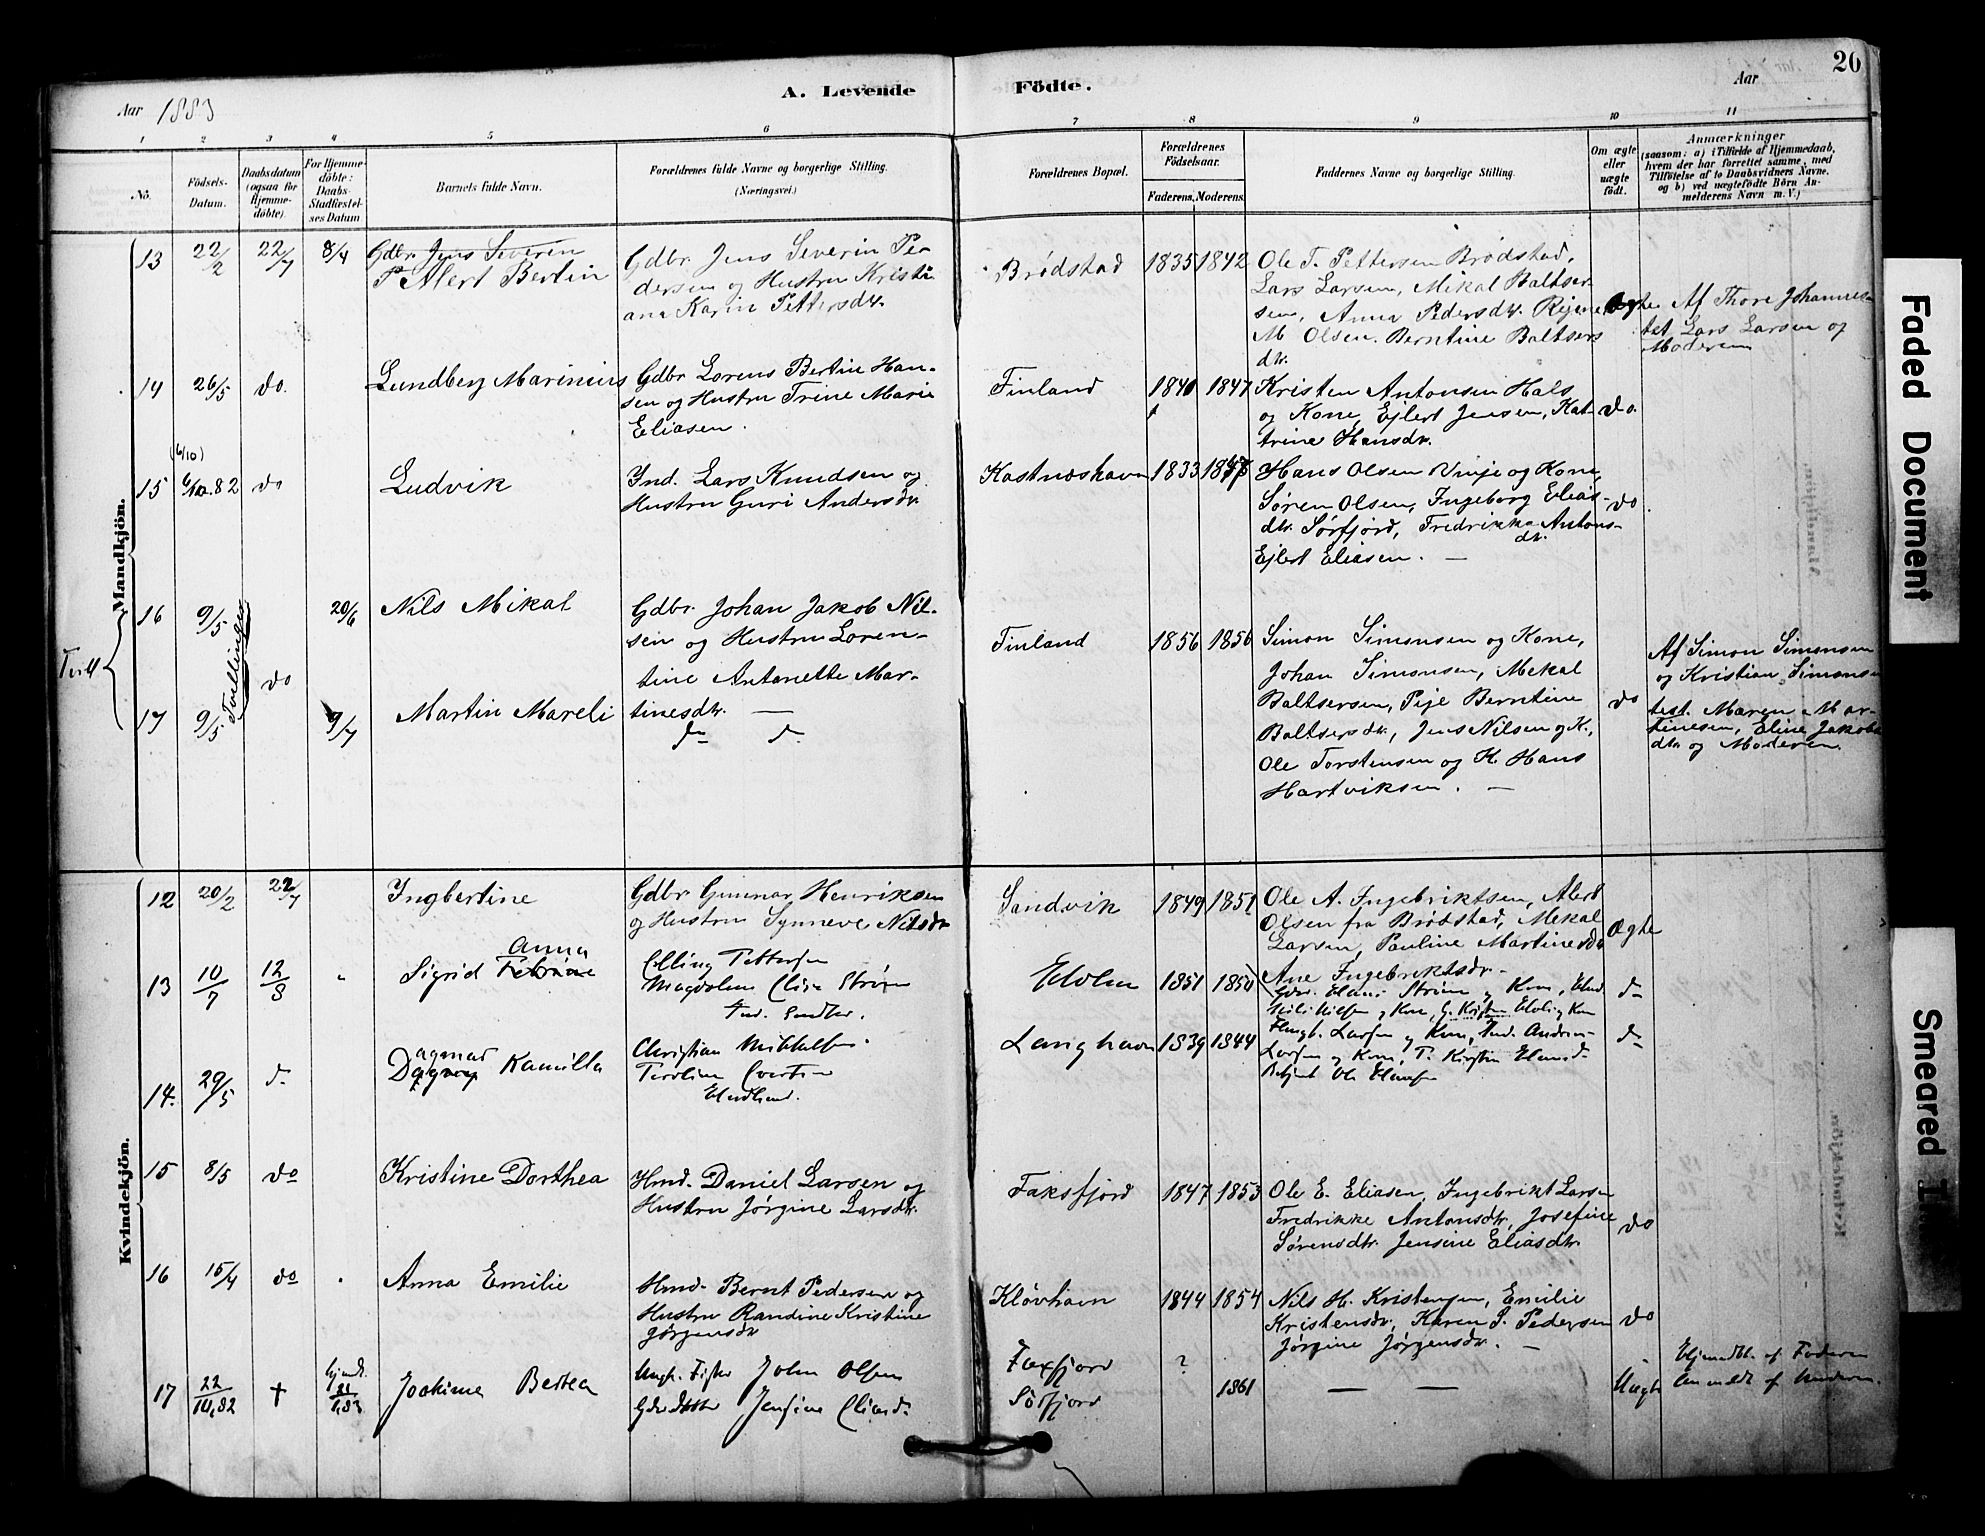 Aar 1883
A. Levende Födte.
Aar
20
1 2 3 4 5 6 7 8 9 10 11
No.
Födsels-Datum.
Daabsdatum (ogsaa for Hjemmedöbte).
For Hjemmedöbte: Daabs-Stadfæstelses Datum
Barnets fulde Navn.
Forældrenes fulde Navne og borgerlige Stilling. (Næringsvei.)
Forældrenes Bopæl.
Forældrenes Födselsaar.
Faderens. Moderens.
Faddernes Navne og borgerlige Stilling.
Om ægte eller uægte födt.
Anmærkninger
(saasom: a) i Tilfælde af Hjemmedaab, hvem der har forrettet samme, med Tilföielse af to Daabsvidners Navne. og b) ved uægtefödte Börn Anmelderens Navn m. V.)
Mandkjön.
13 22/2 22/7 8/4 Gdbr. Jens Severin
P Alert Bertin
Gdbr. Jens Severin Pe-
dersen og Hustru Kristi-
ana Karin Pettersdtr.
Brödstad 1835 1842
Ole T. Pettersen Brödstad,
Lars Larsen, Mikal Baltser-
sen, Anna Pedersdtr.
M Olsen. Berntine Baltsers
dtr.
Ægte
Af Thore Johannes
test Lars Larsen og
Moderen
14 26/5 do. Lundberg Marinius
Gdbr Lorens Bertin Han-
sen og Hustru Trine Marie
Eliasen.
Finland 1840 1847
Kristen Antonsen Hals
og Kone, Ejlert Jensen, Kat-
trine Hansdtr.
do.
(6/10)
15 6/10.82 do Ludvik
Ind. Lars Knudsen og
Hustru Guri Andersdtr
Kastneshavn 1833
Hans Olsen Vinje og Kone,
Søren Olsen, Ingeborg Elias-
dtr. Sørfjord, Fredrikke Antons-
dtr.
Ejlert Eliasen. —
do
Tvill
16 9/5 Tvillinger do 20/6 Nils Mikal
Gdbr. Johan Jakob Nil-
sen og Hustru Loren-
tine Antonette Mar-
tinesdtr. —
Finland 1856 1856
Simon Simonsen og Kone,
Johan Simonsen, Mekal
Baltsersen, Berntine
Baltsersdtr., Jens Nilsen og K.,
Ole Torstensen og K. Hans
Hartviksen. —
do
Af Simon Simonsen
og Kristian Simonse
test. Maren Mar-
tinesen, Eline Jakobs
dtr. og Moderen.
17 9/5 9/7 Martin Mareli
do do
Kvindekjön.
12 20/2 22/7 Ingbertine
Gdbr. Gunnar Henriksen
og Hustru Synneve Nilsdtr
Sandvik 1849 1851
Ole A. Ingebriktsen, Alert
Olsen fra Brödstad, Mekal
Larsen, Pauline Martinesdtr
Ane Ingebriktsdtr.
Ægte
13 10/7 12/8 " Sigrid Anna
Elling Pettersen
Magdalena Elisa Strøm
1851 1850
Gdbr. Hans Strøm og Kone,
Nils Nilsen og Kone,
do
14. 29/5 do Dagmar Kamilla
Christian Mikkelsen
Langhavn 1839 1844
Larsen og Kone,
Larsen og Kone,
Ole Hansen
do
15 8/5 do Kristine Dorthea
Hmd. Daniel Larsen og
Hustru Jørgine Larsdtr.
Faksfjord 1847 1853
Ole E. Eliasen, Ingebrikt Larsen
Fredrikke Antonsdtr, Josefine
Sørensdtr. Jensine Eliasdtr.
do
16 15/4 do Anna Emilie
Hmd. Bernt Pedersen og
Hustru Randine Kristine
Jørgensdtr
Kløvhavn 1844 1854
Nils H. Kristensen, Emilie
Kristensdtr, Karen P. Pedersen
Jørgine Jørgensdtr. —
do
17 22/10.82 + Joakime Bertea
Ungk. Fisker John Olsen
Jensine Eliasd.
Faxfjord
Sørfjord
? 1861
— —
Uægte
Hjemdbt. af Faderen
Anmeldt af
Faded Document
Smeared